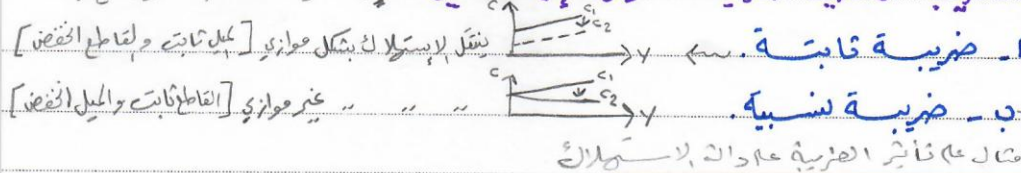 أ - ضريبة ثابتة. ← C C1 C2 Y ينتقل الإستهلاك بشكل موازي [الميل ثابت والقاطع انخفض]
ب - ضريبة نسبية. C C1 C2 Y " " " غير موازي [القاطع ثابت والميل انخفض]
مثال على تأثير الضريبة على دالة الاستهلاك